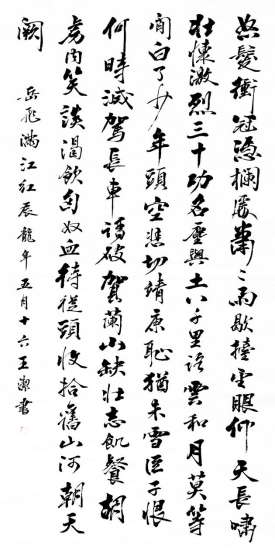 怒髮衝冠憑欄處蕭〻雨歇擡望眼仰天長嘯
壯懷激烈三十功名塵與土八千里路雲和月莫等
閒白了少年頭空悲切靖康恥猶未雪臣子恨
何時滅駕長車踏破賀蘭山缺壯志飢餐胡
虜肉笑談渴飲匈奴血待從頭收拾舊山河朝天
闕
岳飛滿江紅辰龍年五月十六王書